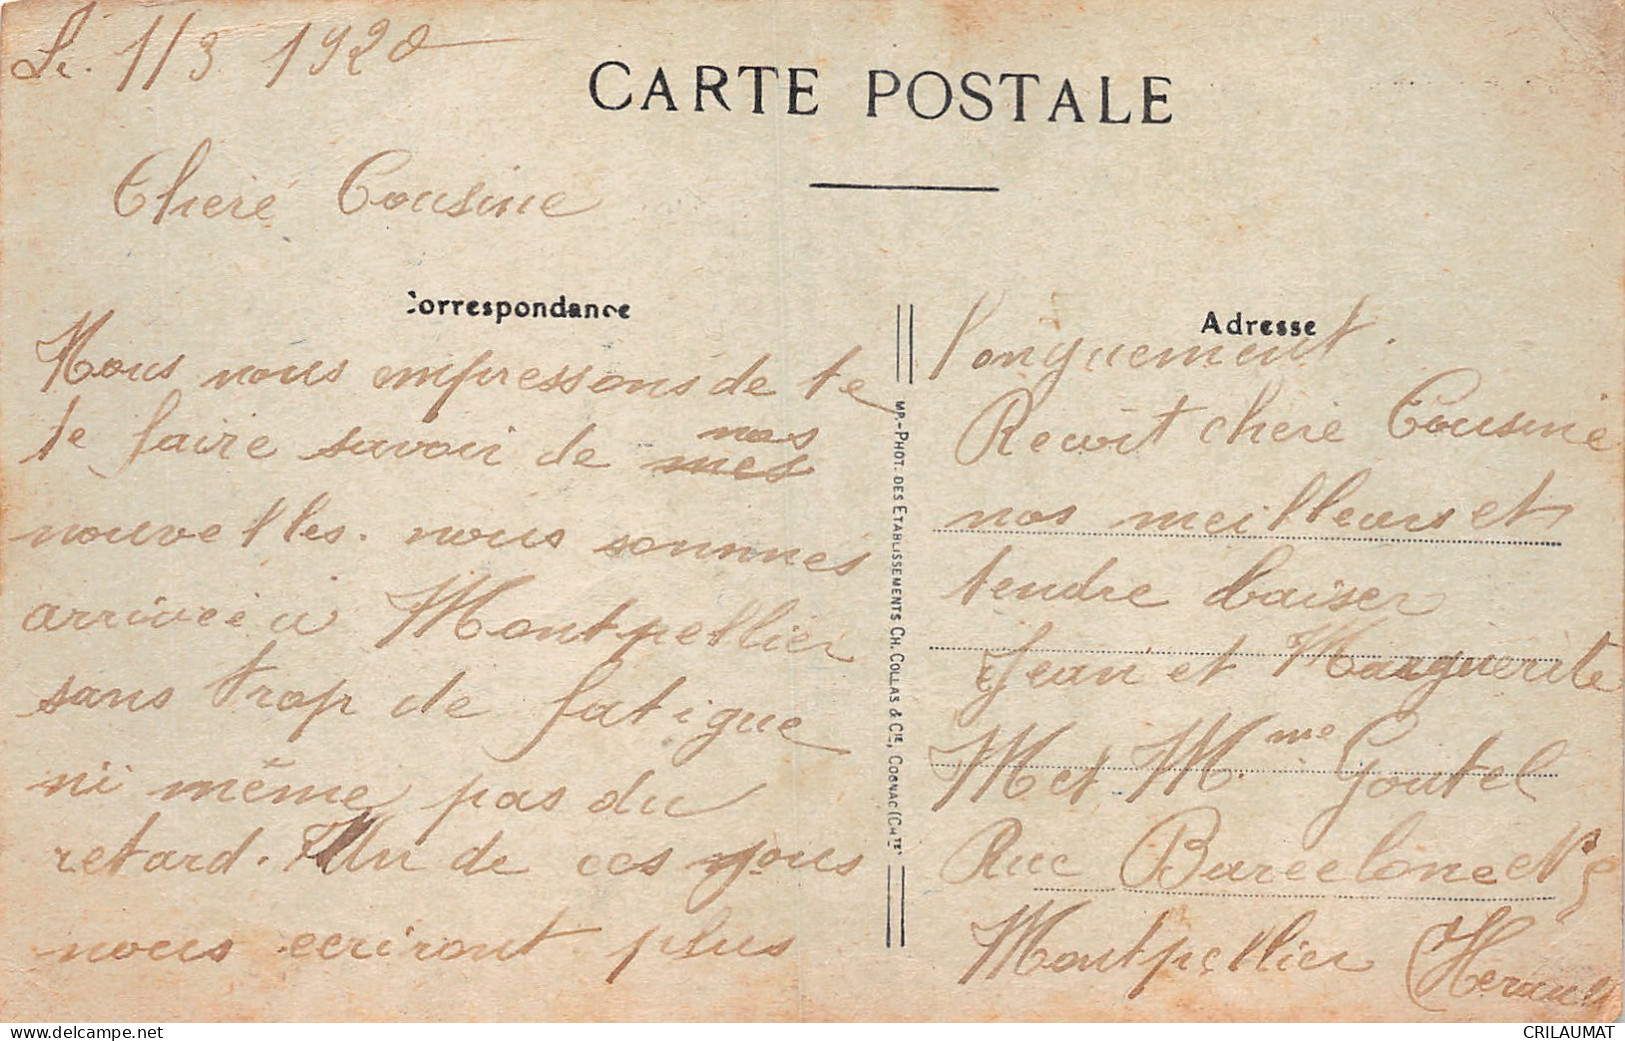 Le. 1/3 1920
CARTE POSTALE
Cheré Cousine
Correspondance
Nous nous empressons de te
te faire savoir de mes nos
nouvelles. nous sommes
arriveé à Montpellier
sans trop de fatigue
ni même pas du
retard. Un de ces jours
nous ecriront plus
MP.-PHOT. DES ETABLISSEMENTS CH. COLLAS & CIE, COGNAC (CHTE)
Adresse
longuement.
Recoit cheré Cousine
nos meilleurs et
tendre baiser
Jean et Marguerite
M et Mme Goutel
Rue Barcelone N°
Montpellier (Herault
delcampe.net
CRILAUMAT